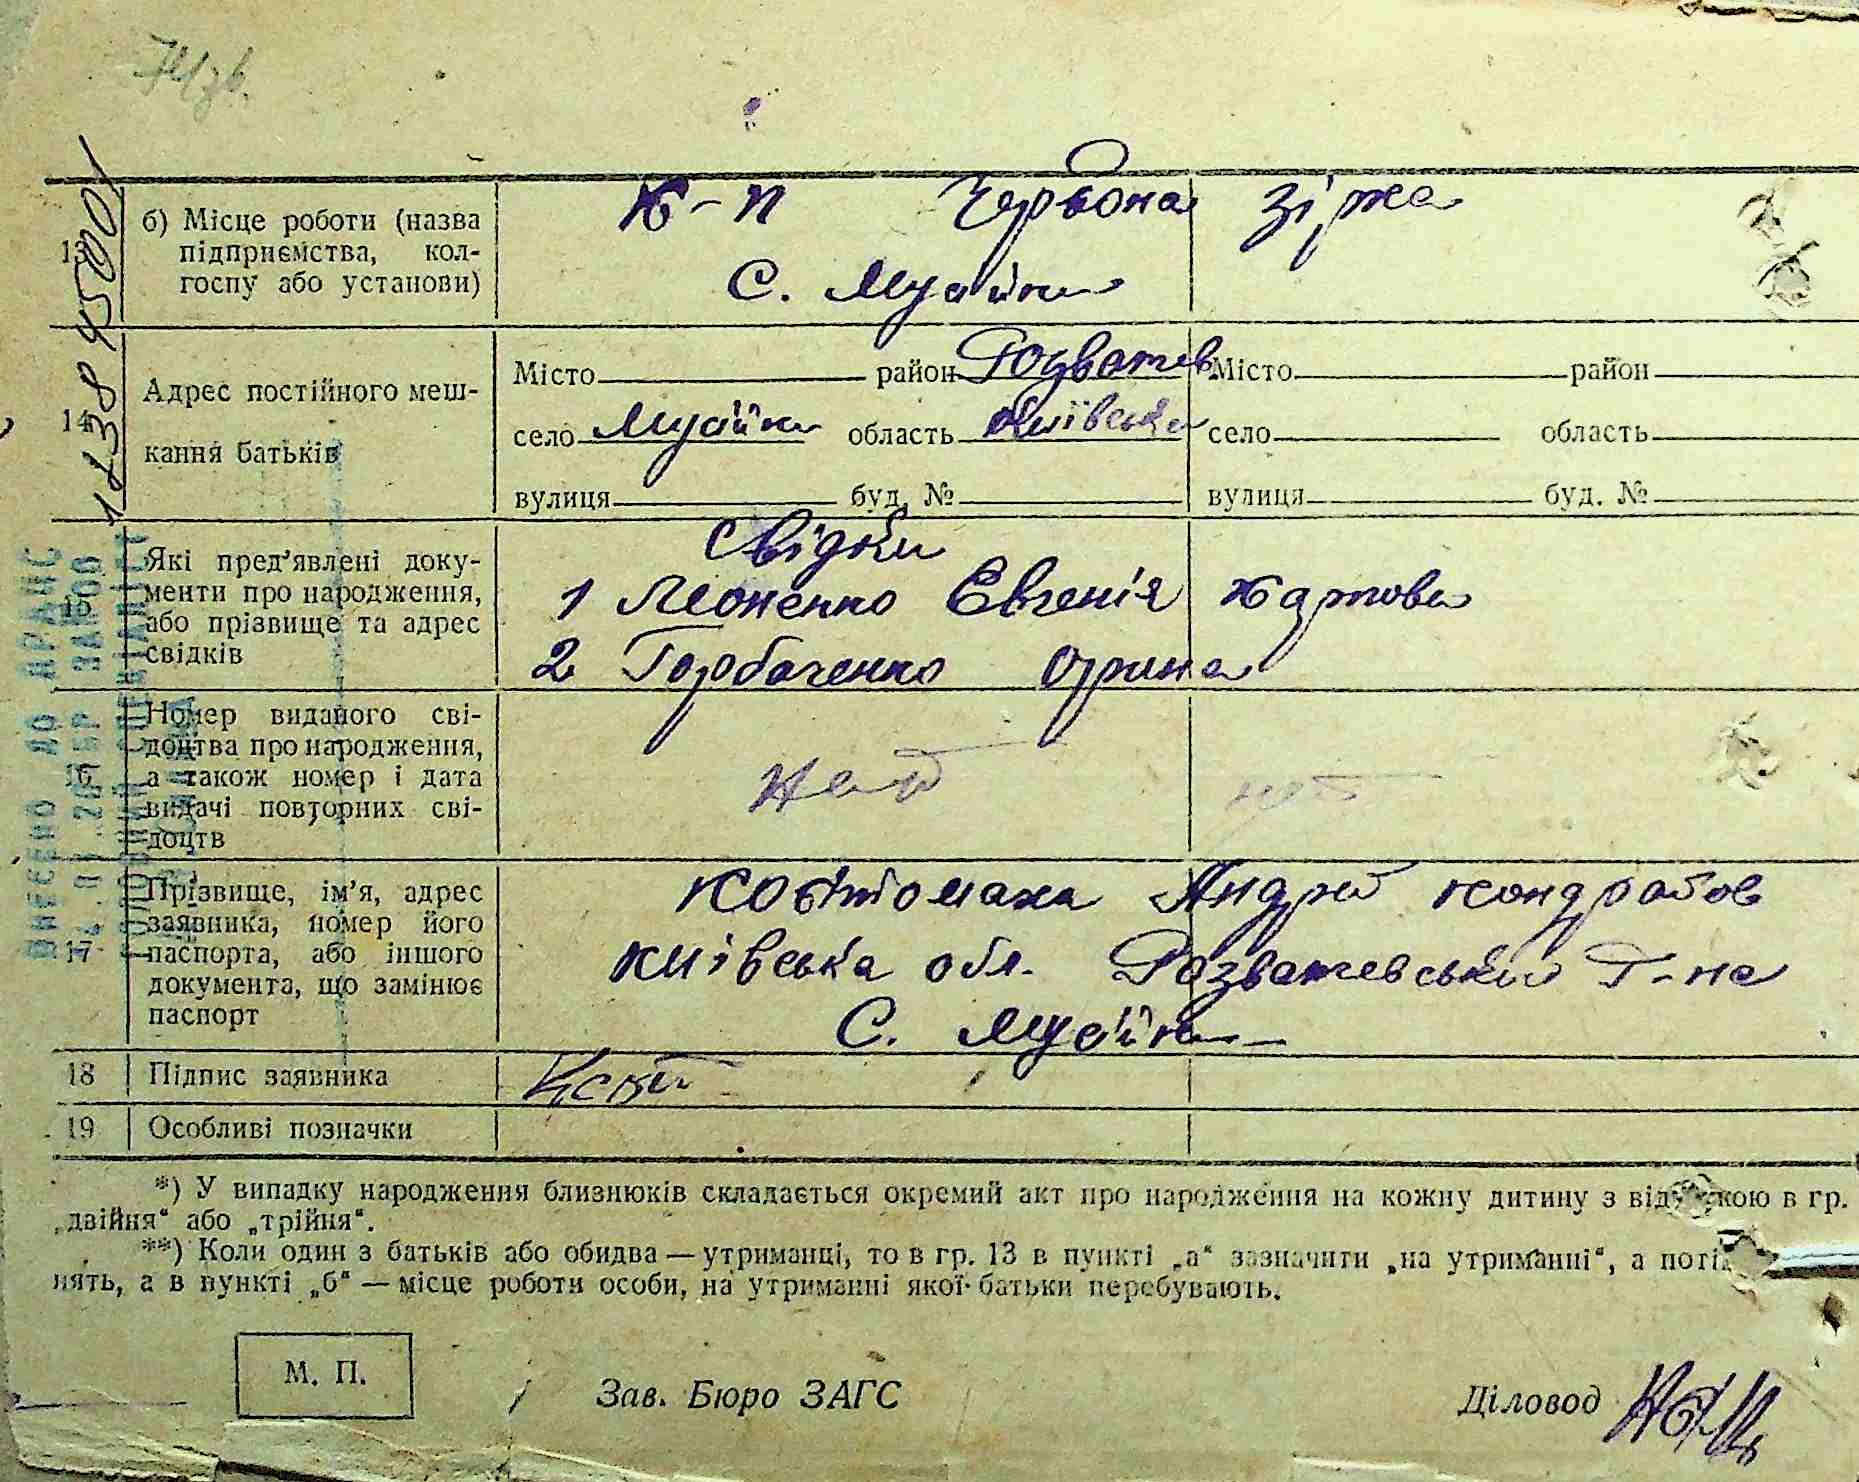 б) Місце роботи (назва підприємства, кол-госпу або установи)
К-п Червона зірка
С. Мусійки
14 Адрес постійного меш-
кання батьків
Місто район Розважев Місто район
село Мусійки область Київська село область
вулиця буд. № вулиця буд. №
15 Які пред’явлені доку-
менти про народження,
або прізвище та адрес
свідків
Свідки
1 Моненко Евгенія Картова
2 Горбаченко Орина
16 Номер виданого сві-
доцтва про народження,
а також номер і дата
видачі повторних сві-
доцтв
нет нет
17 Прізвище, ім’я, адрес
заявника, номер його
паспорта, або іншого
документа, що замінює
паспорт
Андрій Кондратов
Київська обл. Розважевський Р-на
С. Мусійки
18 Підпис заявника
19 Особливі позначки
*) У випадку народження близнюків складається окремий акт про народження на кожну дитину з в гр.
„двійня“ або „трійня“.
**) Коли один з батьків або обидва — утриманці, то в гр. 13 в пункті „а“ зазначити „на утриманні“, а
нять, а в пункті „б“ — місце роботи особи, на утриманні якої батьки перебувають.
М. П. Зав. Бюро ЗАГС Діловод